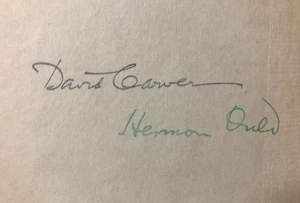 David Carver
Hermon Ould